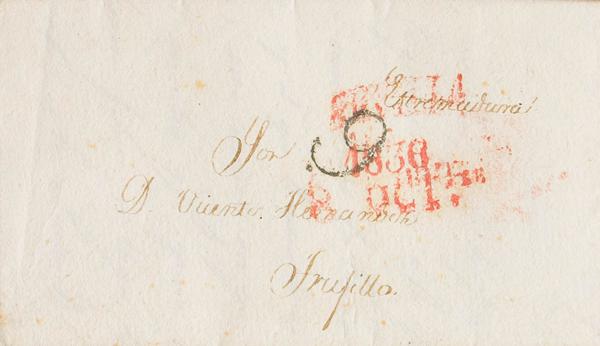 Estremadura
9
Sor
1836
OCT.
D. Vicente Hernandez
Trujillo.